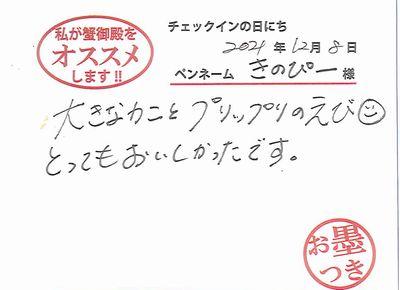 私が蟹御殿を
オススメ
します!!
チェックインの日にち
2021年12月8日
ペンネーム きのぴー 様
大きなカニと プリップリのえび
とってもおいしかったです。
お墨
つき